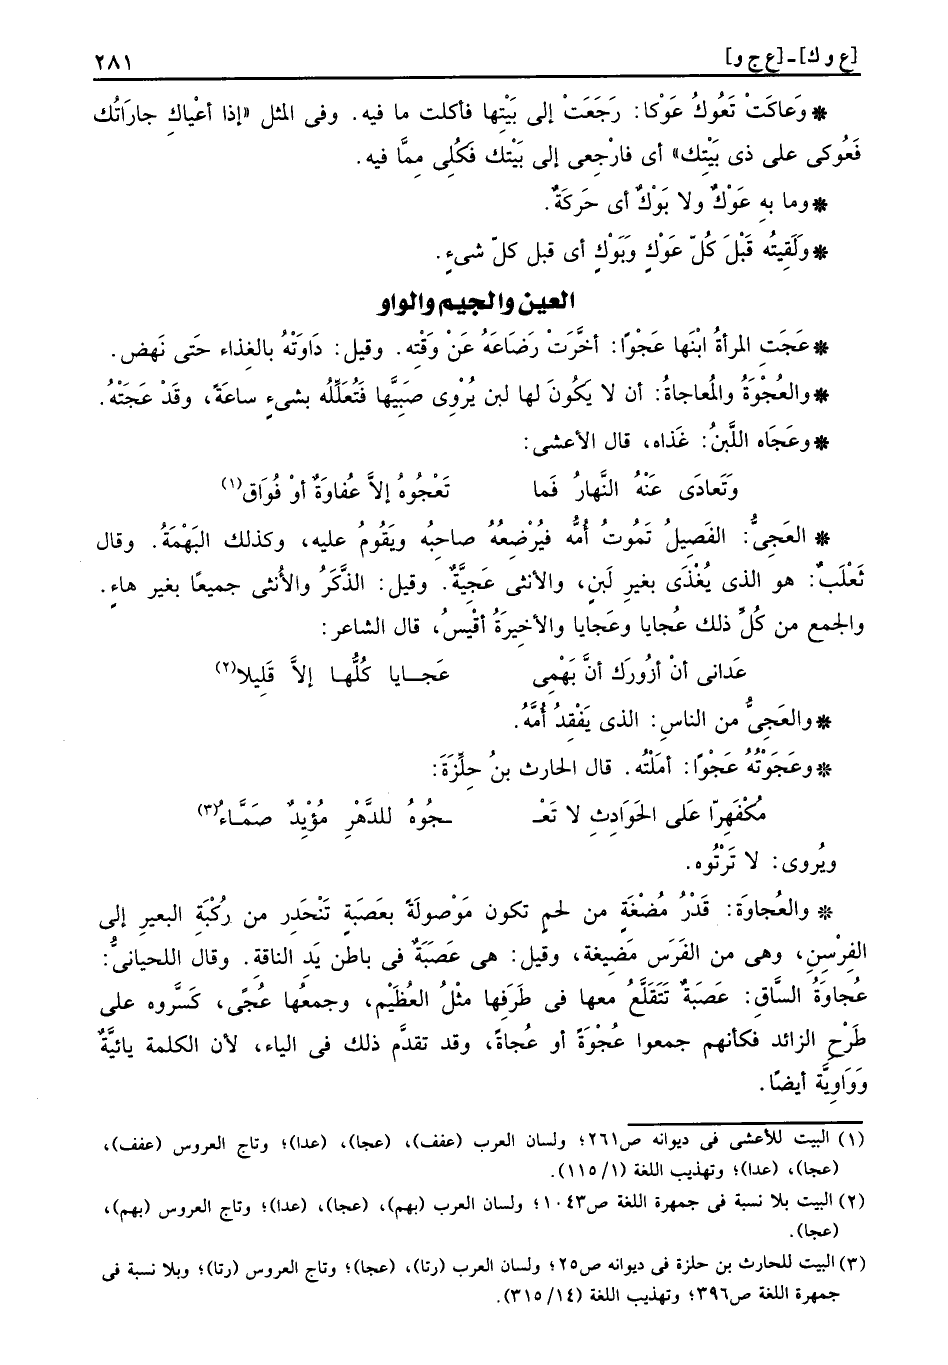 [ع و ك] ـ [ع ج و] ٢٨١
* وَعاكَتْ تَعُوكُ عَوْكا: رَجَعَتْ إلى بَيْتِها فأكلت ما فيه. وفى المثل «إذا أعْياكِ جاراتُك
فَعُوكى على ذى بَيْتِك» أى فارْجِعى إلى بَيْتك فَكُلِى مِمَّا فيه.
* وما به عَوْكٌ ولا بَوْكٌ أى حَركَةٌ.
* ولَقِيتُه قَبْلَ كُلّ عَوْكٍ وبَوْكٍ أى قبل كلّ شىءٍ.
العين والجيم والواو
* عَجَتِ المرأةُ ابْنَها عَجْوًا: أخَّرَتْ رَضَاعَهُ عَنْ وَقْتِه. وقيل: دَاوَتْهُ بالغذاء حَتى نَهض.
* والعُجْوَةُ والمُعاجاةُ: أن لا يَكُونَ لها لبن يُرْوِى صَبِيَّها فَتُعَلِّلُه بشىءٍ ساعَةً، وقَدْ عَجَتْهُ.
* وعَجَاه اللَّبنُ: غَذاه، قال الأعشى:
وَتَعادَى عَنْهُ النَّهارُ فَما تَعْجُوهُ إلاَّ عُفاوَةٌ أوْ فُوَاق(١)
* العَجِىُّ: الفَصِيلُ تَمُوتُ أُمُّه فيُرْضِعُهُ صاحبُه ويَقُومُ عليه، وكذلك البَهْمَةُ. وقال
ثَعْلَبٌ: هو الذى يُغْذَى بغيرِ لَبَنٍ، والأنثى عَجِيَّةٌ. وقيل: الذَّكَرُ والأُنثى جميعًا بغير هاء.
والجمع من كُلِّ ذلك عُجايا وعَجايا والأخيرَةُ أقيْسُ، قال الشاعر:
عَدانى أنْ أزُورَك أنَّ بَهْمِى عَجــايا كُلُّهـا إلاَّ قَلِيلا(٢)
* والعَجِىُّ من الناسِ: الذى يَفْقِدُ أُمَّهُ.
* وعَجَوْتُهُ عَجْوًا: أملتُه. قال الحارث بنُ حلِّزَةَ:
مُكْفَهِرّا عَلَى الحَوَادِثِ لا تَعْـ ـجُوهُ للدَّهْرِ مُؤْيِدٌ صَمَّـاءُ(٣)
ويُروى: لا تَرْتُوه.
* والعُجاوَة: قَدْرُ مُضْغَةٍ من لحم تكون مَوْصولَةً بعَصَبةٍ تَنْحَدِر من رُكْبَةِ البعير إلى
الفِرْسِنِ، وهى من الفَرَس مَضِيغة، وقيل: هى عَصَبَةٌ فى باطن يَد الناقةِ. وقال اللحيانىُّ:
عُجاوَةُ السَّاقِ: عَصَبةٌ تَتَقَلَّعُ معها فى طَرَفِها مثْلُ العُظَيْم، وجمعُها عُجًى، كَسَّروه على
طَرْحِ الزائد فكأنهم جمعوا عُجْوَةً أو عُجاةً، وقد تقدَّم ذلك فى الياء، لأن الكلمة يائيَّةٌ
وَوَاوِيَّة أيضًا.
(١) البيت للأعشى فى ديوانه ص٢٦١؛ ولسان العرب (عفف)، (عجا)، (عدا)؛ وتاج العروس (عفف)،
(عجا)، (عدا)؛ وتهذيب اللغة (١/ ١١٥).
(٢) البيت بلا نسبة فى جمهرة اللغة ص١٠٤٣؛ ولسان العرب (بهم)، (عجا)، (عدا)؛ وتاج العروس (بهم)،
(عجا).
(٣) البيت للحارث بن حلزة فى ديوانه ص٢٥؛ ولسان العرب (رتا)، (عجا)؛ وتاج العروس (رتا)؛ وبلا نسبة فى
جمهرة اللغة ص٣٩٦؛ وتهذيب اللغة (١٤/ ٣١٥).